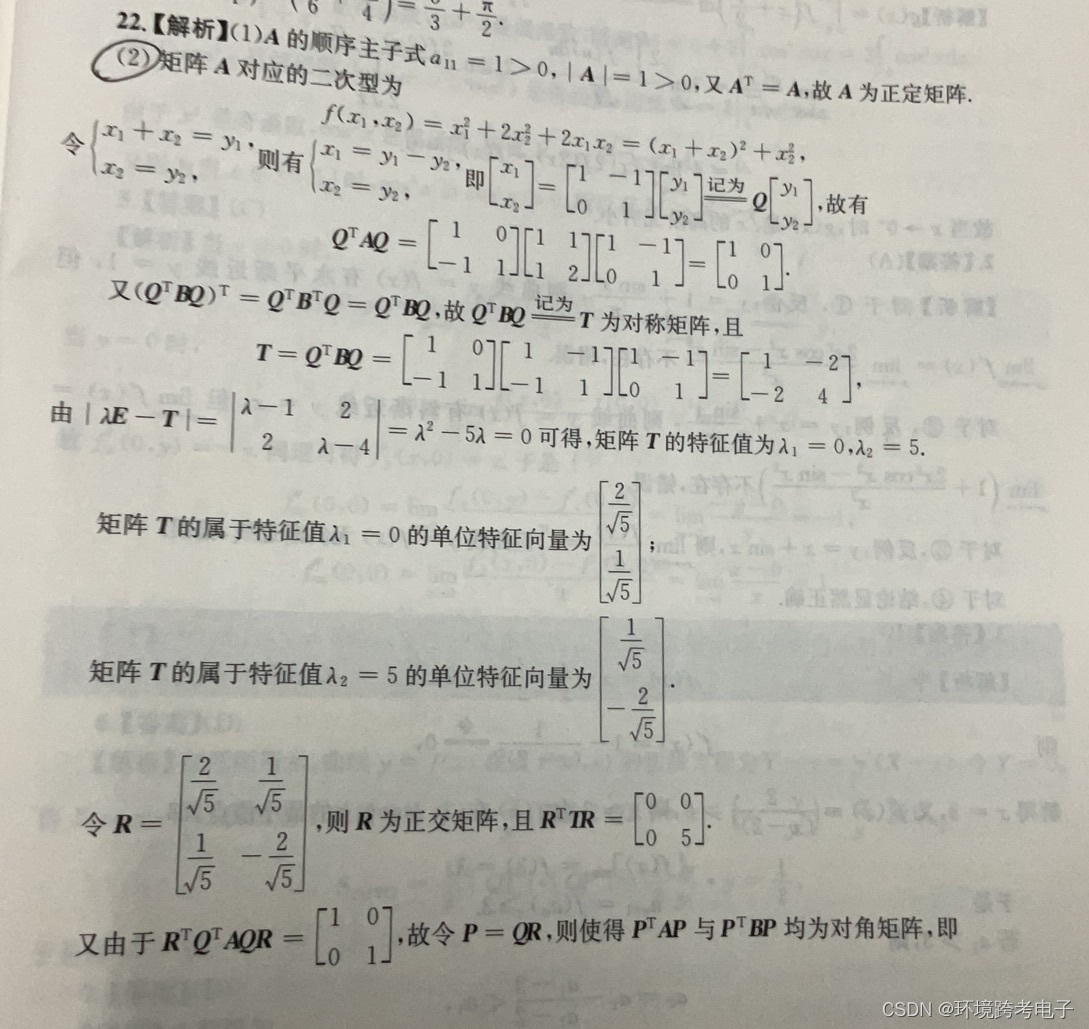 (6 + 4) = 3 + π/2.
22.【解析】(1)A 的顺序主子式 a₁₁ = 1 > 0, | A | = 1 > 0, 又 Aᵀ = A, 故 A 为正定矩阵.
(2) 矩阵 A 对应的二次型为
f(x₁, x₂) = x₁² + 2x₂² + 2x₁x₂ = (x₁ + x₂)² + x₂²,
令 { x₁ + x₂ = y₁, x₂ = y₂, 则有 { x₁ = y₁ − y₂, x₂ = y₂, 即 [x₁; x₂] = [1 −1; 0 1][y₁; y₂] 记为 Q[y₁; y₂], 故有
QᵀAQ = [1 0; −1 1][1 1; 1 2][1 −1; 0 1] = [1 0; 0 1].
又 (QᵀBQ)ᵀ = QᵀBᵀQ = QᵀBQ, 故 QᵀBQ 记为 T 为对称矩阵, 且
T = QᵀBQ = [1 0; −1 1][1 −1; −1 1][1 −1; 0 1] = [1 −2; −2 4],
由 | λE − T | = |λ−1 2; 2 λ−4| = λ² − 5λ = 0 可得, 矩阵 T 的特征值为 λ₁ = 0, λ₂ = 5.
矩阵 T 的属于特征值 λ₁ = 0 的单位特征向量为 [2/√5; 1/√5];
矩阵 T 的属于特征值 λ₂ = 5 的单位特征向量为 [1/√5; −2/√5].
令 R = [2/√5 1/√5; 1/√5 −2/√5], 则 R 为正交矩阵, 且 RᵀTR = [0 0; 0 5].
又由于 RᵀQᵀAQR = [1 0; 0 1], 故令 P = QR, 则使得 PᵀAP 与 PᵀBP 均为对角矩阵, 即
CSDN @环境跨考电子